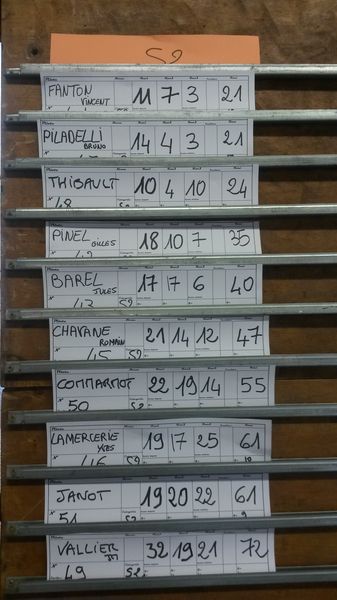 S2
FANTON VINCENT 11 7 3 21
PILADELLI BRUNO 14 4 3 21
THIBAULT 10 4 10 24
48 S2
PINEL GILLES 18 10 7 35
BAREL JULES 17 17 6 40
43 S2
CHAVANE ROMAIN 21 14 12 47
45 S2
COMMARMOT 22 19 14 55
50 S2
LAMERCERIE YVES 19 17 25 61
46 S2 10
JANOT 19 20 22 61
51 S2 9
VALLIER 32 19 21 72
49 S2